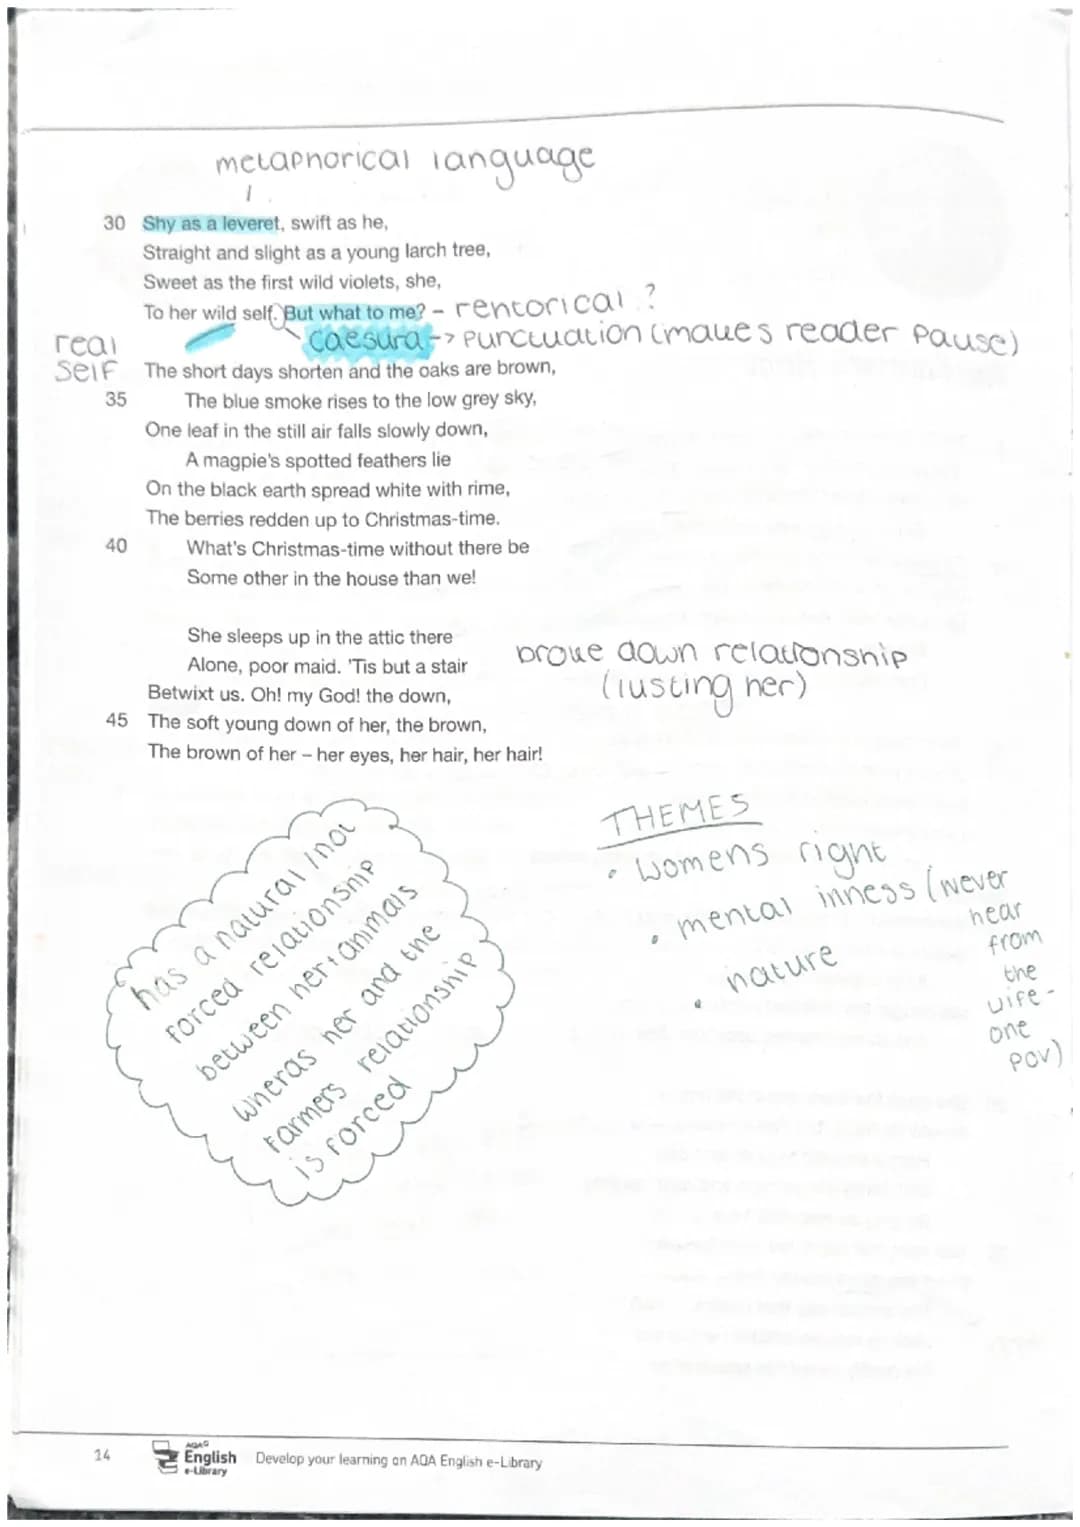 metaphorical language
30 Shy as a leveret, swift as he,
Straight and slight as a young larch tree,
Sweet as the first wild violets, she,
To her wild self. But what to me? - rhetorical ?
caesura -> punctuation (makes reader pause)
real
self
The short days shorten and the oaks are brown,
35 The blue smoke rises to the low grey sky,
One leaf in the still air falls slowly down,
A magpie's spotted feathers lie
On the black earth spread white with rime,
The berries redden up to Christmas-time.
40 What's Christmas-time without there be
Some other in the house than we!
She sleeps up in the attic there
Alone, poor maid. 'Tis but a stair
Betwixt us. Oh! my God! the down,
45 The soft young down of her, the brown,
The brown of her – her eyes, her hair, her hair!
broke down relationship
(lusting her)
has a natural / not
forced relationship
between her + animals
wheras her and the
farmers relationship
is forced
THEMES
• womens right
• mental illness (never
hear
from
the
wife -
one
pov)
• nature
14
AQA
English
e-Library
Develop your learning on AQA English e-Library